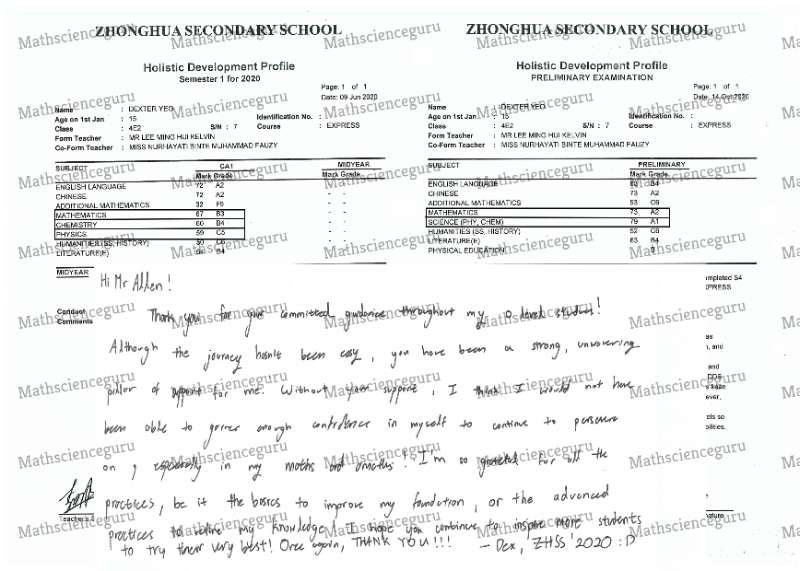 ZHONGHUA SECONDARY SCHOOL
Holistic Development Profile
Semester 1 for 2020
Page: 1 of 1
Date: 09 Jun 2020
Name : DEXTER YEO
Age on 1st Jan : 15 Identification No. :
Class : 4E2 S/N : 7 Course : EXPRESS
Form Teacher : MR LEE MING HUI KELVIN
Co-Form Teacher : MISS NURHAYATI BINTE MUHAMMAD FAUZY
SUBJECT CA1 MIDYEAR
Mark Grade Mark Grade
ENGLISH LANGUAGE 72 A2 - -
CHINESE 72 A2 - -
ADDITIONAL MATHEMATICS 32 F9 - -
MATHEMATICS 67 B3
CHEMISTRY 60 B4
PHYSICS 59 C5
HUMANITIES (SS, HISTORY) 50 C6
LITERATURE(E) B4
MIDYEAR
Conduct
Comments
ZHONGHUA SECONDARY SCHOOL
Holistic Development Profile
PRELIMINARY EXAMINATION
Page: 1 of 1
Date: 14 Oct 2020
Name : DEXTER YEO
Age on 1st Jan : 15 Identification No. :
Class : 4E2 S/N : 7 Course : EXPRESS
Form Teacher : MR LEE MING HUI KELVIN
Co-Form Teacher : MISS NURHAYATI BINTE MUHAMMAD FAUZY
SUBJECT PRELIMINARY
Mark Grade
ENGLISH LANGUAGE B4
CHINESE 73 A2
ADDITIONAL MATHEMATICS 53 C6
MATHEMATICS 73 A2
SCIENCE (PHY, CHEM) 79 A1
HUMANITIES (SS, HISTORY) 52 C6
LITERATURE(E) 63 B4
PHYSICAL EDUCATION
Hi Mr Allen!
Thank you for your committed guidance throughout my O level studies!
Although the journey hasn't been easy, you have been a strong, unwavering
pillar of support for me. Without your support, I think I would not have
been able to garner enough confidence in myself to continue to persevere
on, especially in my maths and amaths! I'm so grateful for all the
practices, be it the basics to improve my foundation, or the advanced
practices to my knowledge! I hope you continue to inspire more students
to try their very best! Once again, THANK YOU!!! - Dex, ZHSS '2020 :D
Mathscienceguru